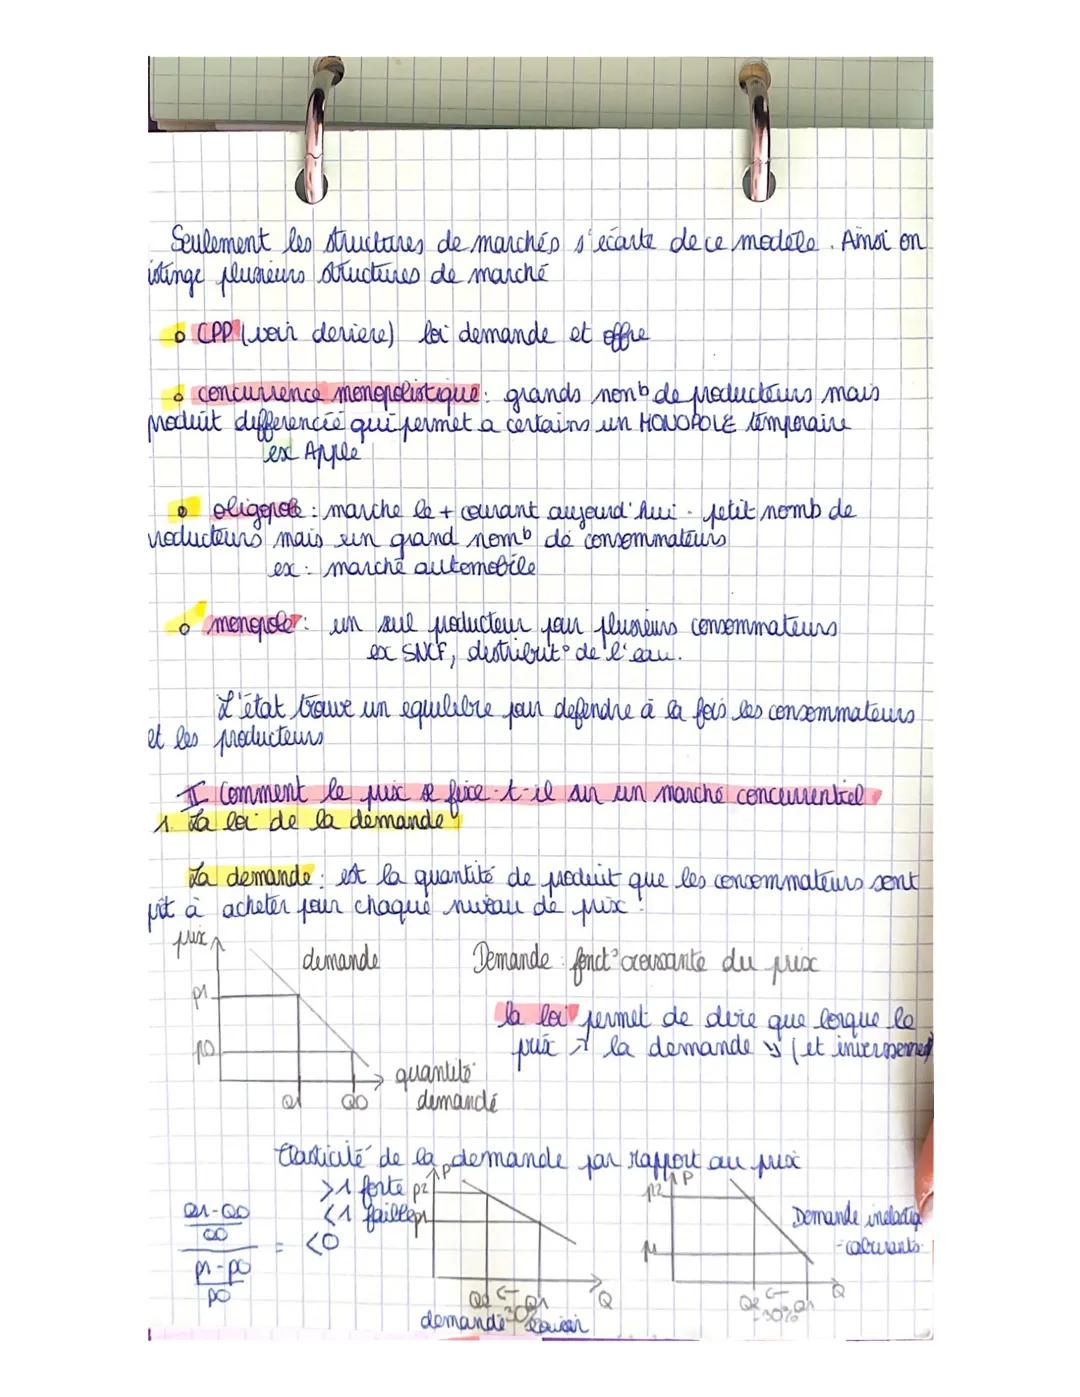 Seulement les structures de marchés s'écarte de ce modèle. Ainsi on
istinge plusieurs structures de marché
CPP (voir deriere) loi demande et offre
concurrence monopolistique: grands nomb de producteurs mais
produit differencié qui permet a certains un MONOPOLE temporaire
ex Apple
oligopole: marche le + courant aujourd'hui. petit nomb de
roducteurs mais un grand nomb de consommateurs
ex: marché automobile
monopole: un seul producteur pour plusieurs consommateurs
ex SNCF, distribut° de l'eau.
L'état trouve un equilibre pour defendre à la fois les consommateurs
et les producteurs
II Comment le prix se fixe-t-il sur un marché concurrentiel
1. La loi de la demande
La demande: est la quantité de produit que les consommateurs sont
prêt à acheter pour chaque niveau de prix.
prix
demande
Demande fonct° croissante du prix
p1
la loi permet de dire que lorque le
prix ↗ la demande ↘ (et inversement
p0
quantité
demandé
Q1 Q0
Elasticité de la demande par rapport au prix
>1 forte
<1 faible
Q1-Q0
Q0
p1-p0
p0
= <0
P
p2
p1
Q2 ← Q1 Q
-30%
demande
P
p2
p1
Demande inelastiq
Q2 ← Q1 Q
-30%